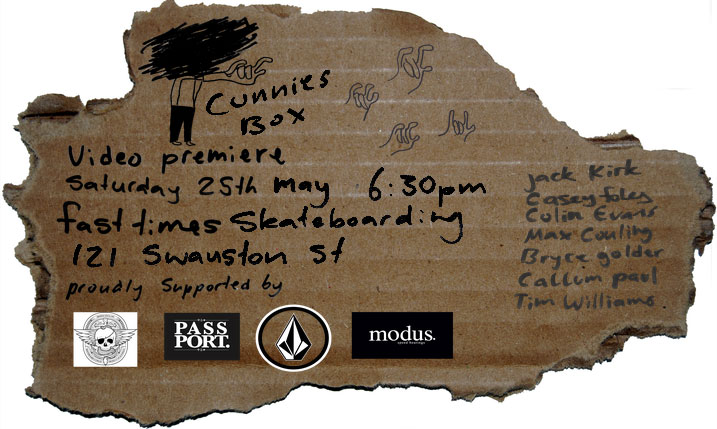 Cunnies
Box
Video premiere
Saturday 25th May 6:30pm
fast times Skateboarding
121 Swanston St
proudly Supported by
Jack Kirk
Casey foley
Colin Evans
Max Couling
Bryce golder
Callum paul
Tim Williams
PASS
PORT.
modus.